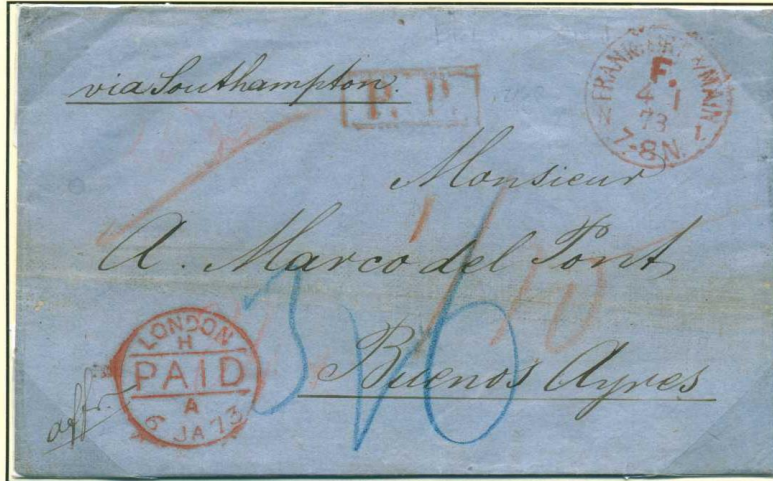 via Southampton.
P.P.
FRANKFURT A/MAIN
F.
4 1
73
7-8N.
1
Monsieur
A. Marco del Pont
Buenos Ayres
LONDON
H
PAID
A
6 JA 73
affr.